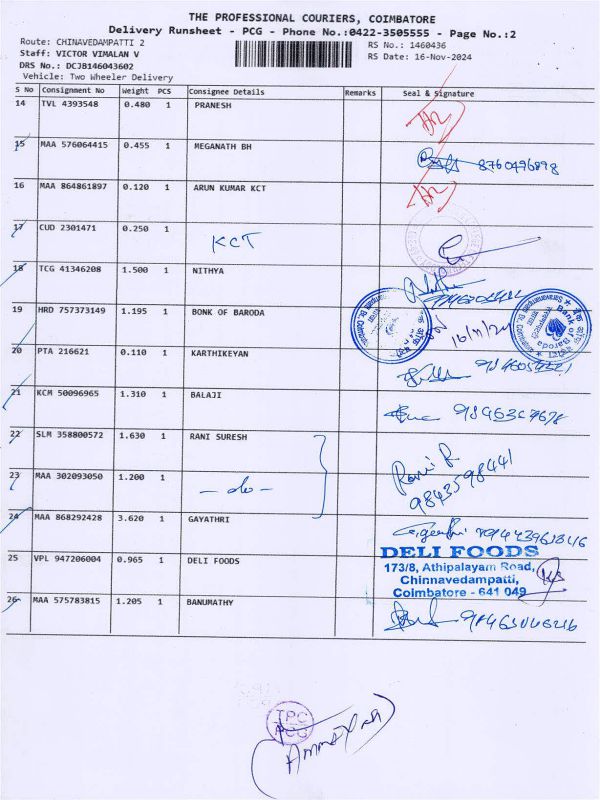 THE PROFESSIONAL COURIERS, COIMBATORE
Delivery Runsheet - PCG - Phone No.:0422-3505555 - Page No.:2
Route: CHINAVEDAMPATTI 2
RS No.: 1460436
Staff: VICTOR VIMALAN V
RS Date: 16-Nov-2024
DRS No.: DCJB146043602
Vehicle: Two Wheeler Delivery
S No Consignment No Weight PCS Consignee Details Remarks Seal & Signature
14 TVL 4393548 0.480 1 PRANESH
15 MAA 576064415 0.455 1 MEGANATH BH 8760496898
16 MAA 864861897 0.120 1 ARUN KUMAR KCT
17 CUD 2301471 0.250 1 KCT
18 TCG 41346208 1.500 1 NITHYA
19 HRD 757373149 1.195 1 BONK OF BARODA 16/11/24
Bank of Baroda
20 PTA 216621 0.110 1 KARTHIKEYAN
21 KCM 50096965 1.310 1 BALAJI
22 SLM 358800572 1.630 1 RANI SURESH Rani R
23 MAA 302093050 1.200 1 - do - 9843598441
24 MAA 868292428 3.620 1 GAYATHRI
25 VPL 947206004 0.965 1 DELI FOODS
DELI FOODS
173/8, Athipalayam Road,
Chinnavedampatti,
Coimbatore - 641 049
26 MAA 575783815 1.205 1 BANUMATHY
TPC
PCG